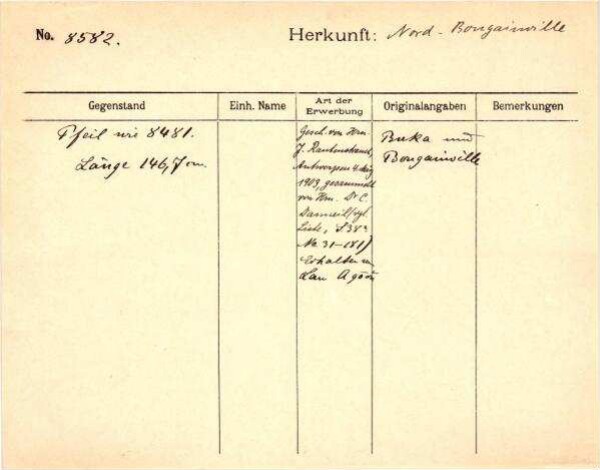 No. 8582.
Herkunft: Nord-Bougainville
Gegenstand
Einh. Name
Art der
Erwerbung
Originalangaben
Bemerkungen
Pfeil wie 8481.
Länge 146,7 cm.
Gesch. von Hrn.
J. Rautenstrauch,
Antwerpen 4.
1909, gesammelt
von Hrn. Dr C.
vgl.
Liste, S 383
No 31-181)
Erhalten im
Buka und
Bougainville